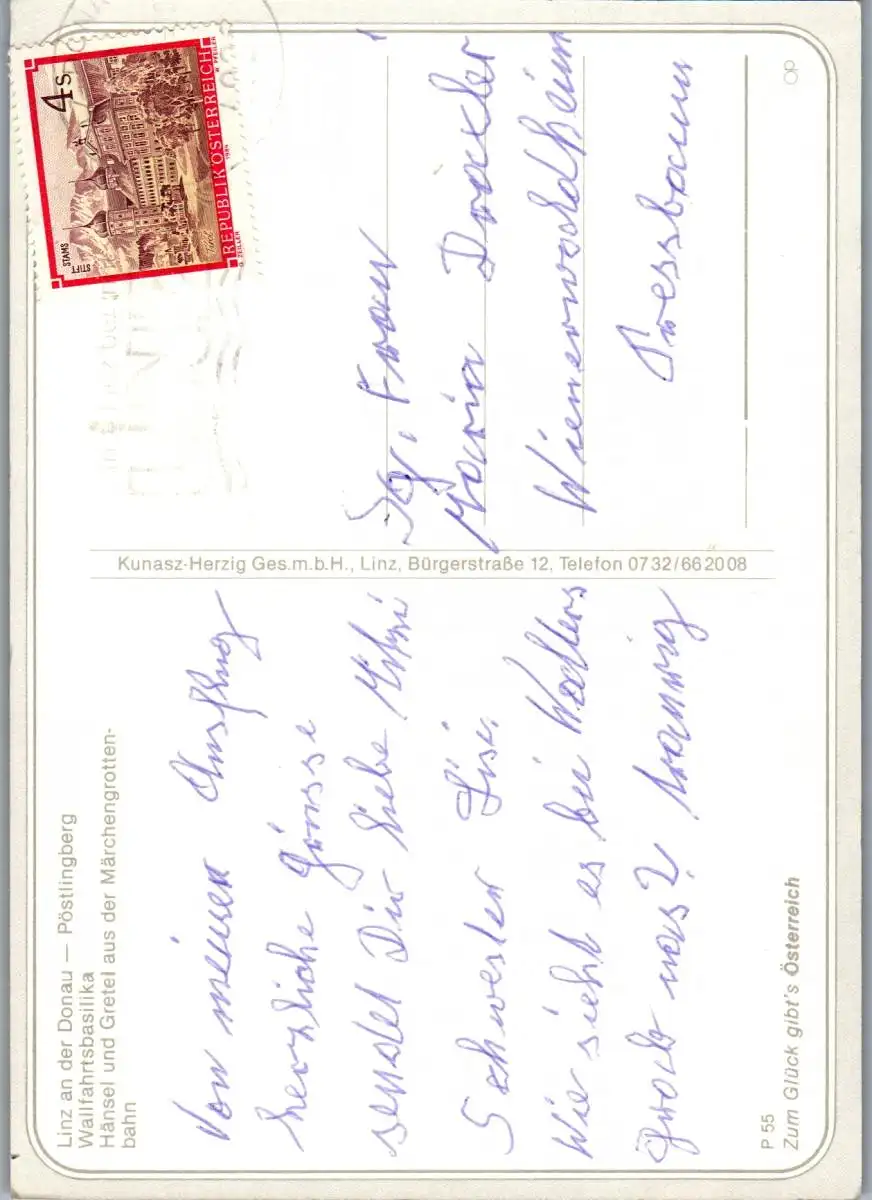 Linz an der Donau — Pöstlingberg
Wallfahrtsbasilika
Hänsel und Gretel aus der Märchengrotten-
bahn
Von meinen Ausflug
herzliche Grüsse
sendet Dir liebe Mitzi
Schwester Lisi.
Wie sieht es bei Walters
Grab aus? traurig
P 55
Zum Glück gibt's Österreich
Kunasz-Herzig Ges.m.b.H., Linz, Bürgerstraße 12, Telefon 0732/662008
4 S
STIFT
STAMS
REPUBLIK ÖSTERREICH
O. ZEILER
1984
W. PFEILER
Frau
Maria
Wienerwaldheim
Pressbaum